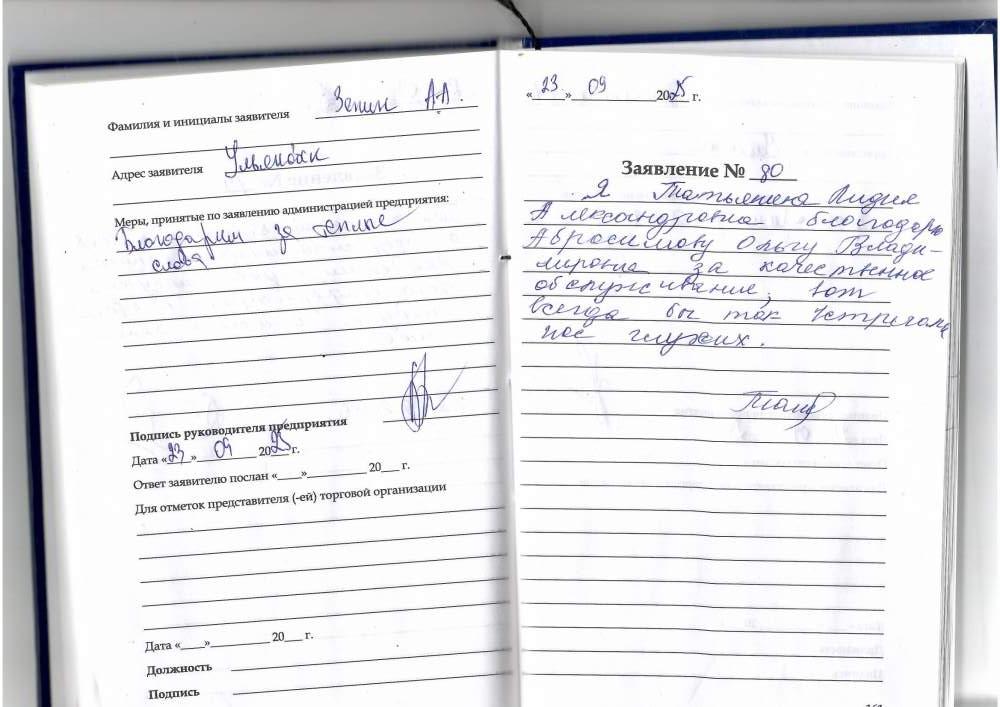 Фамилия и инициалы заявителя Зенин А.А.
Адрес заявителя Ульяновск
Меры, принятые по заявлению администрацией предприятия:
Благодарим за теплые
слова
Подпись руководителя предприятия
Дата «23» 09 2025 г.
Ответ заявителю послан «____»__________ 20___ г.
Для отметок представителя (-ей) торговой организации
Дата «____»__________ 20___ г.
Должность
Подпись
«23» 09 2025 г.
Заявление № 80
Я Татьянина Лидия
Александровна благодарю
Абросимову Ольгу Влади-
мировна за качественное
обслуживание, вот
всегда бы так встречали
нас глухих.
161